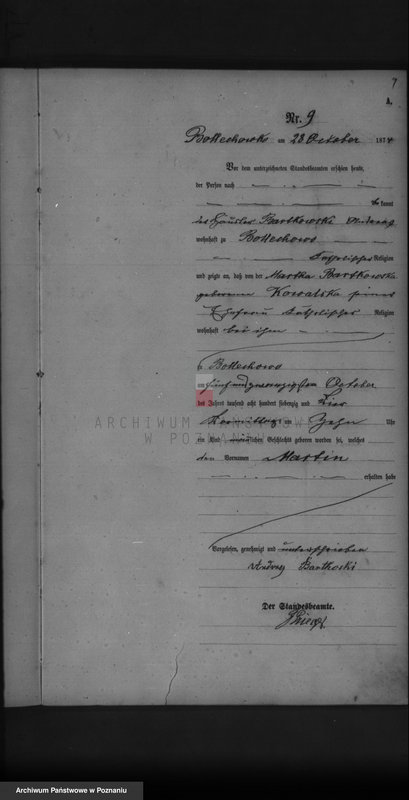 7
A.
Nr. 9
Bolechowo am 28 October 1874
Vor dem unterzeichneten Standesbeamten erschien heute,
der Person nach
kannt
der Häusler Bartkowski Andreas
wohnhaft zu Bolechowo
katholischer Religion
und zeigte an, daß von der Martha Bartkowska
geborene Kowalska seiner
Ehefrau katholischer Religion
wohnhaft bei ihm
zu Bolechowo
am fünf und zwanzigsten October
des Jahres tausend acht hundert siebenzig und vier
Vormittags um Zehn Uhr
ein Kind männlichen Geschlechts geboren worden sei, welches
den Vornamen Martin
erhalten habe
Vorgelesen, genehmigt und unterschrieben
Andrzej Bartkoski
Der Standesbeamte.
ARCHIWUM PAŃSTWOWE
W POZNANIU
Archiwum Państwowe w Poznaniu